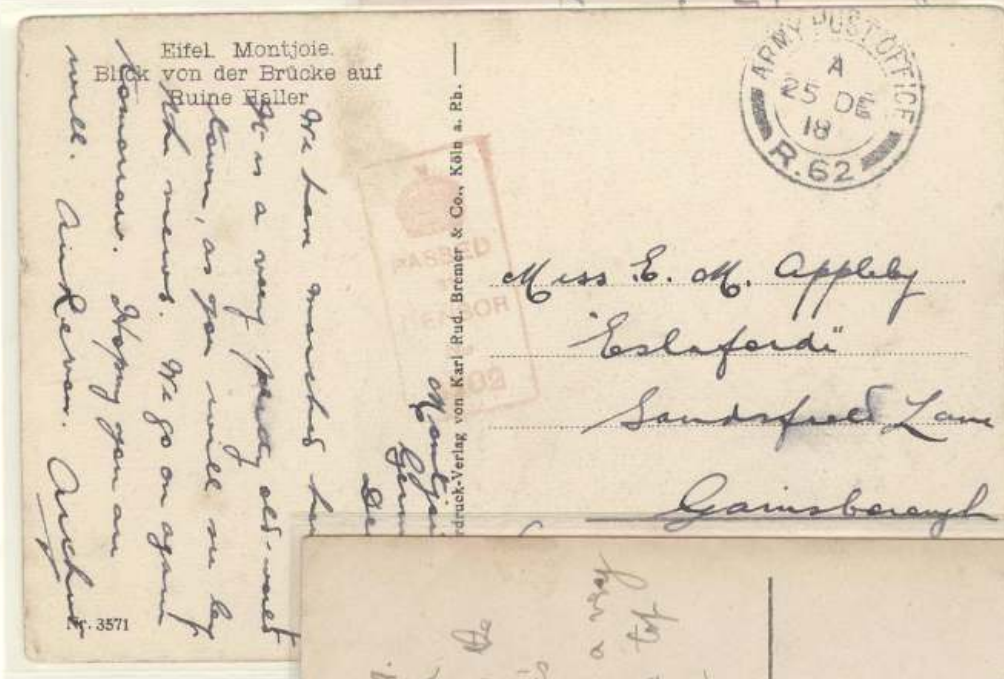 Eifel. Montjoie.
Blick von der Brücke auf
Ruine Haller
Montjoie
De
We have marched
It is a very pretty old-world
town, as you will see by
the views. We go on again
tomorrow. Hoping you are
well. Au Revoir. Archer
Nr. 3571
rdruck-Verlag von Karl Rud. Bremer & Co., Köln a. Rh.
PASSED
CENSOR
ARMY POST OFFICE
A
25 DE
18
R.62
Miss E. M. Appleby
"Eslaforde"
Sandsfield Lane
Gainsborough
a very
top